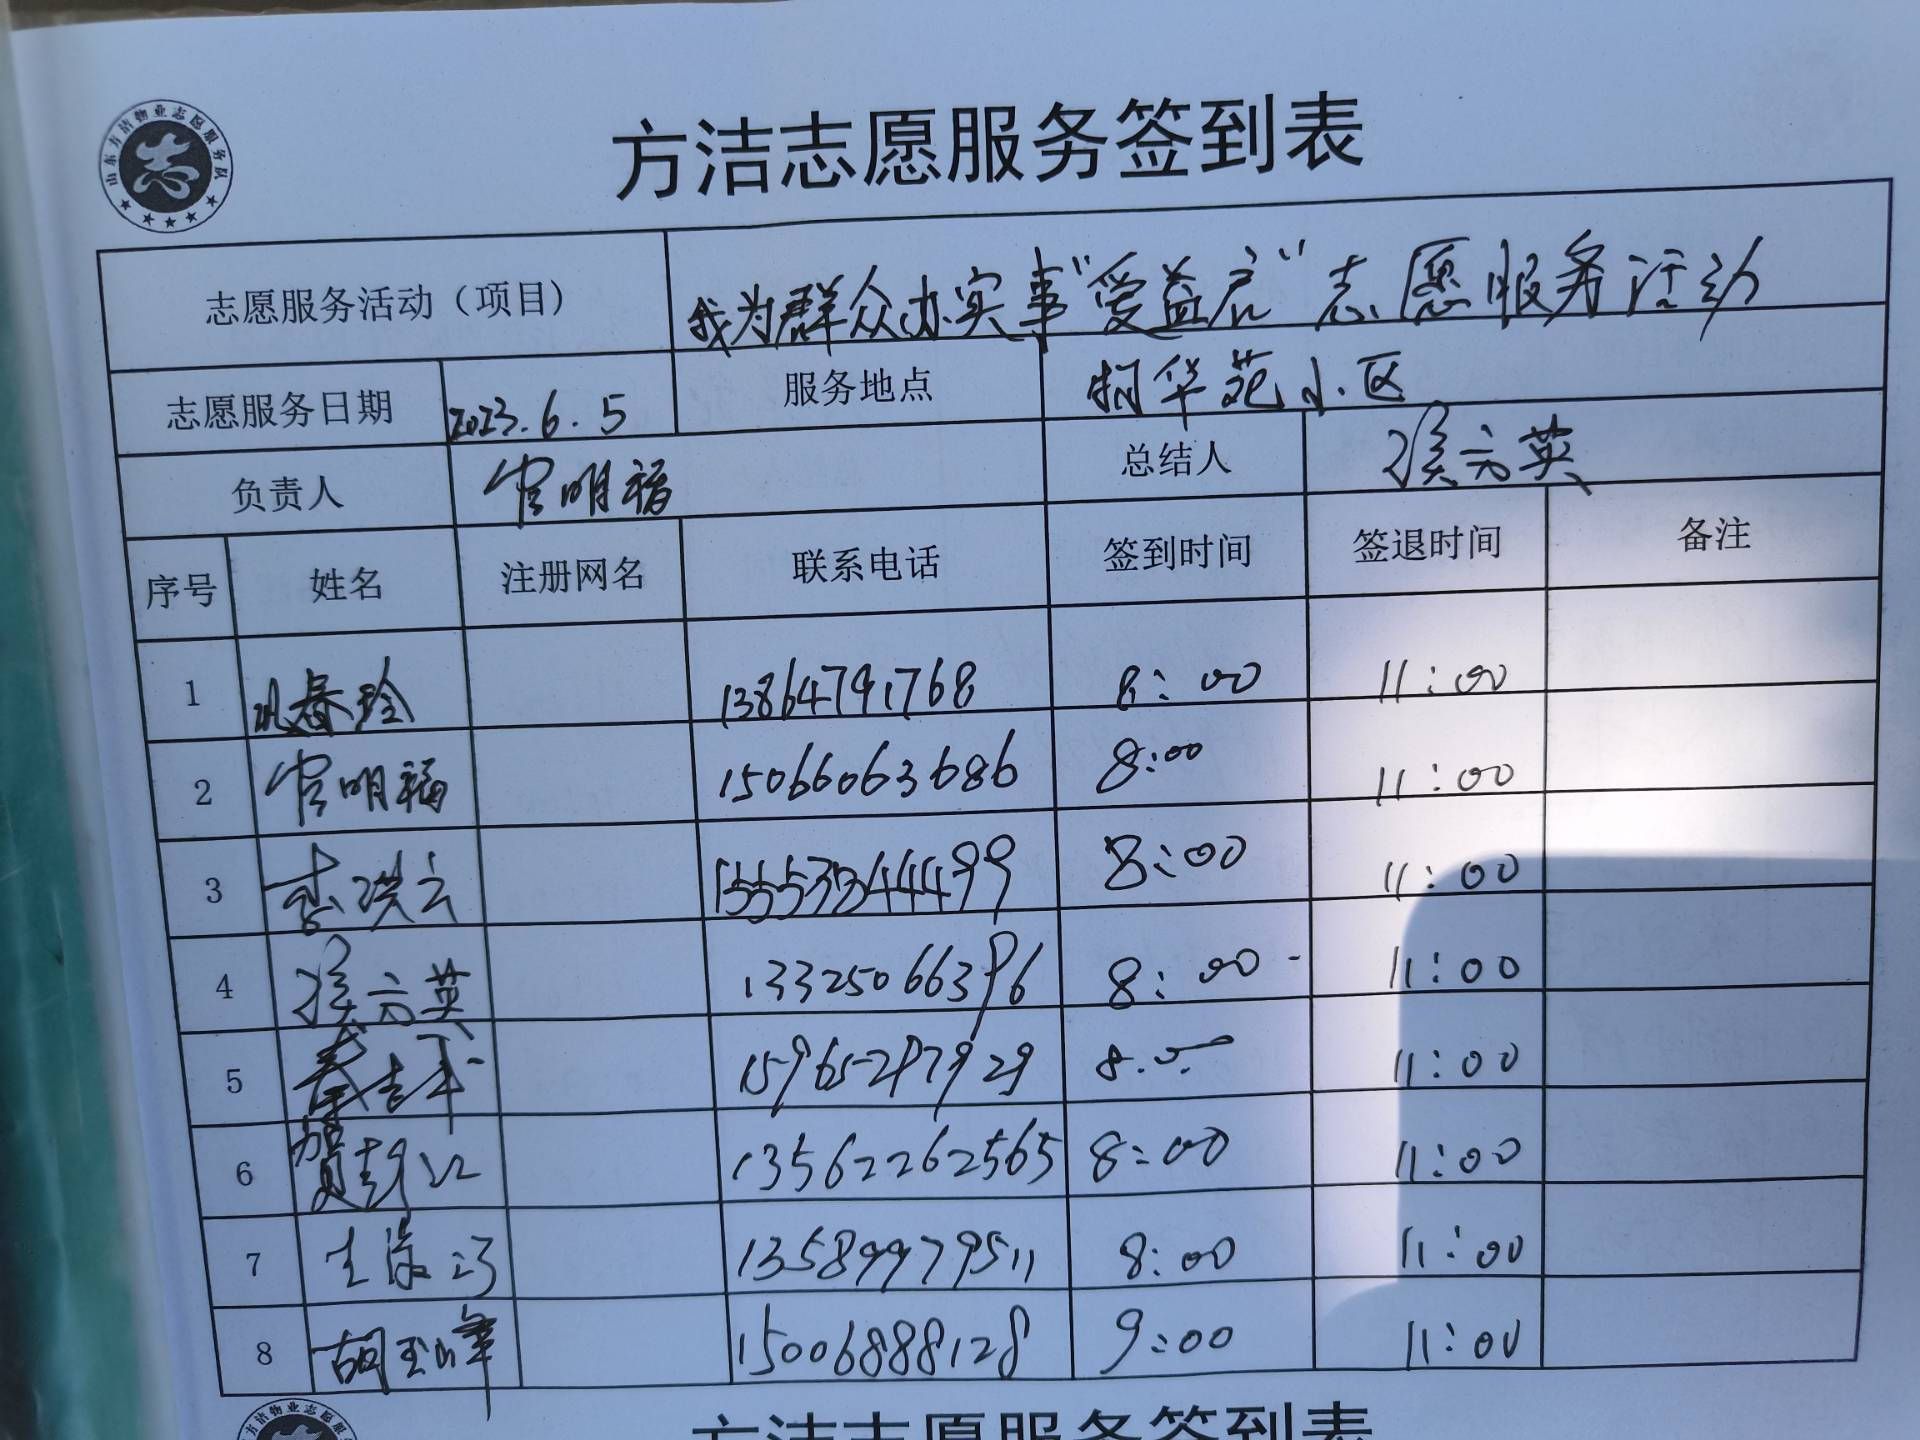 山东方洁物业志愿服务队
方洁志愿服务签到表
志愿服务活动（项目） 我为群众办实事"受益启"志愿服务活动
志愿服务日期 2023.6.5 服务地点 柯华苑小区
负责人 官明福 总结人 元英
序号 姓名 注册网名 联系电话 签到时间 签退时间 备注
1 春玲 13864791768 8:00 11:00
2 官明福 15066063686 8:00 11:00
3 李洪云 15553544499 8:00 11:00
4 元英 13325066396 8:00 11:00
5 15965297929 8:00 11:00
6 贺 13562262565 8:00 11:00
7 13589979511 8:00 11:00
8 胡玉峰 15006888128 9:00 11:00
方洁物业志愿服
方洁志愿服务签到表